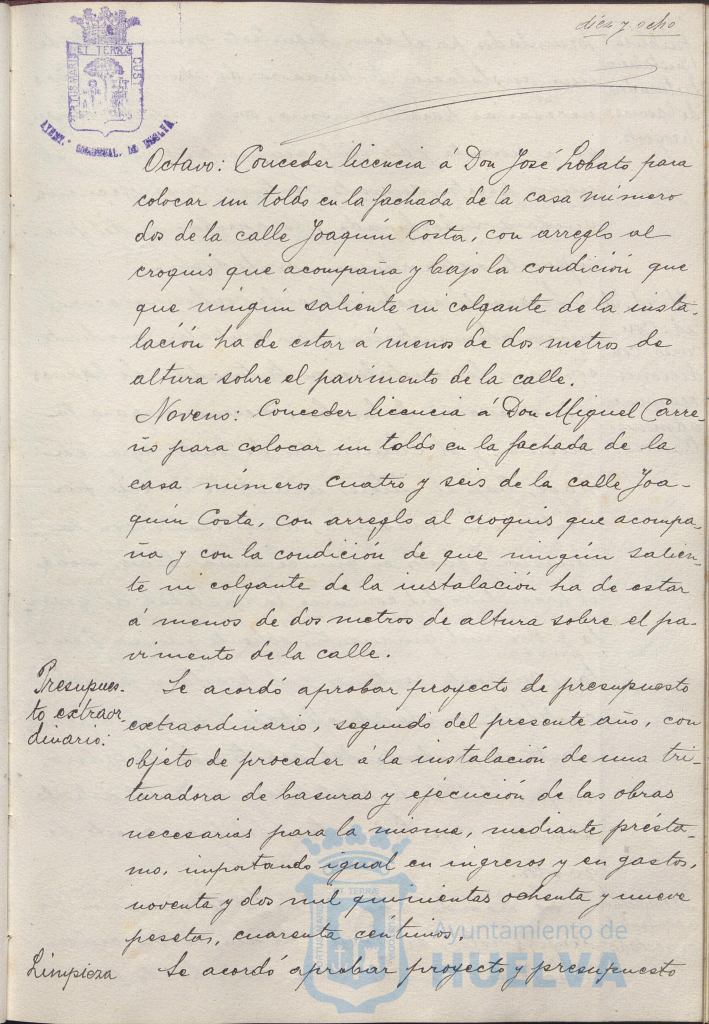 diez y ocho
ET TERRÆ CUST
AYUNT. CONSTITUAL. DE HUELVA.
Octavo: Conceder licencia á Don José Lobato para
colocar un toldo en la fachada de la casa número
dos de la calle Joaquín Costa, con arreglo al
croquis que acompaña y bajo la condición que
que ningún saliente ni colgante de la insta-
lación ha de estar á menos de dos metros de
altura sobre el pavimento de la calle.
Noveno: Conceder licencia á Don Miguel Carre-
ño para colocar un toldo en la fachada de la
casa números cuatro y seis de la calle Joa-
quín Costa, con arreglo al croquis que acompa-
ña y con la condición de que ningún salien-
te ni colgante de la instalación ha de estar
á menos de dos metros de altura sobre el pa-
vimento de la calle.
Presupues-
to extraor
dinario:
Se acordó aprobar proyecto de presupuesto
extraordinario, segundo del presente año, con
objeto de proceder á la instalación de una tri-
turadora de basuras y ejecución de las obras
necesarias para la misma, mediante présta-
mo, importando igual en ingresos y en gastos,
noventa y dos mil quinientas ochenta y nueve
pesetas, cuarenta céntimos.
Limpieza
Se acordó aprobar proyecto y presupuesto
Ayuntamiento de
HUELVA